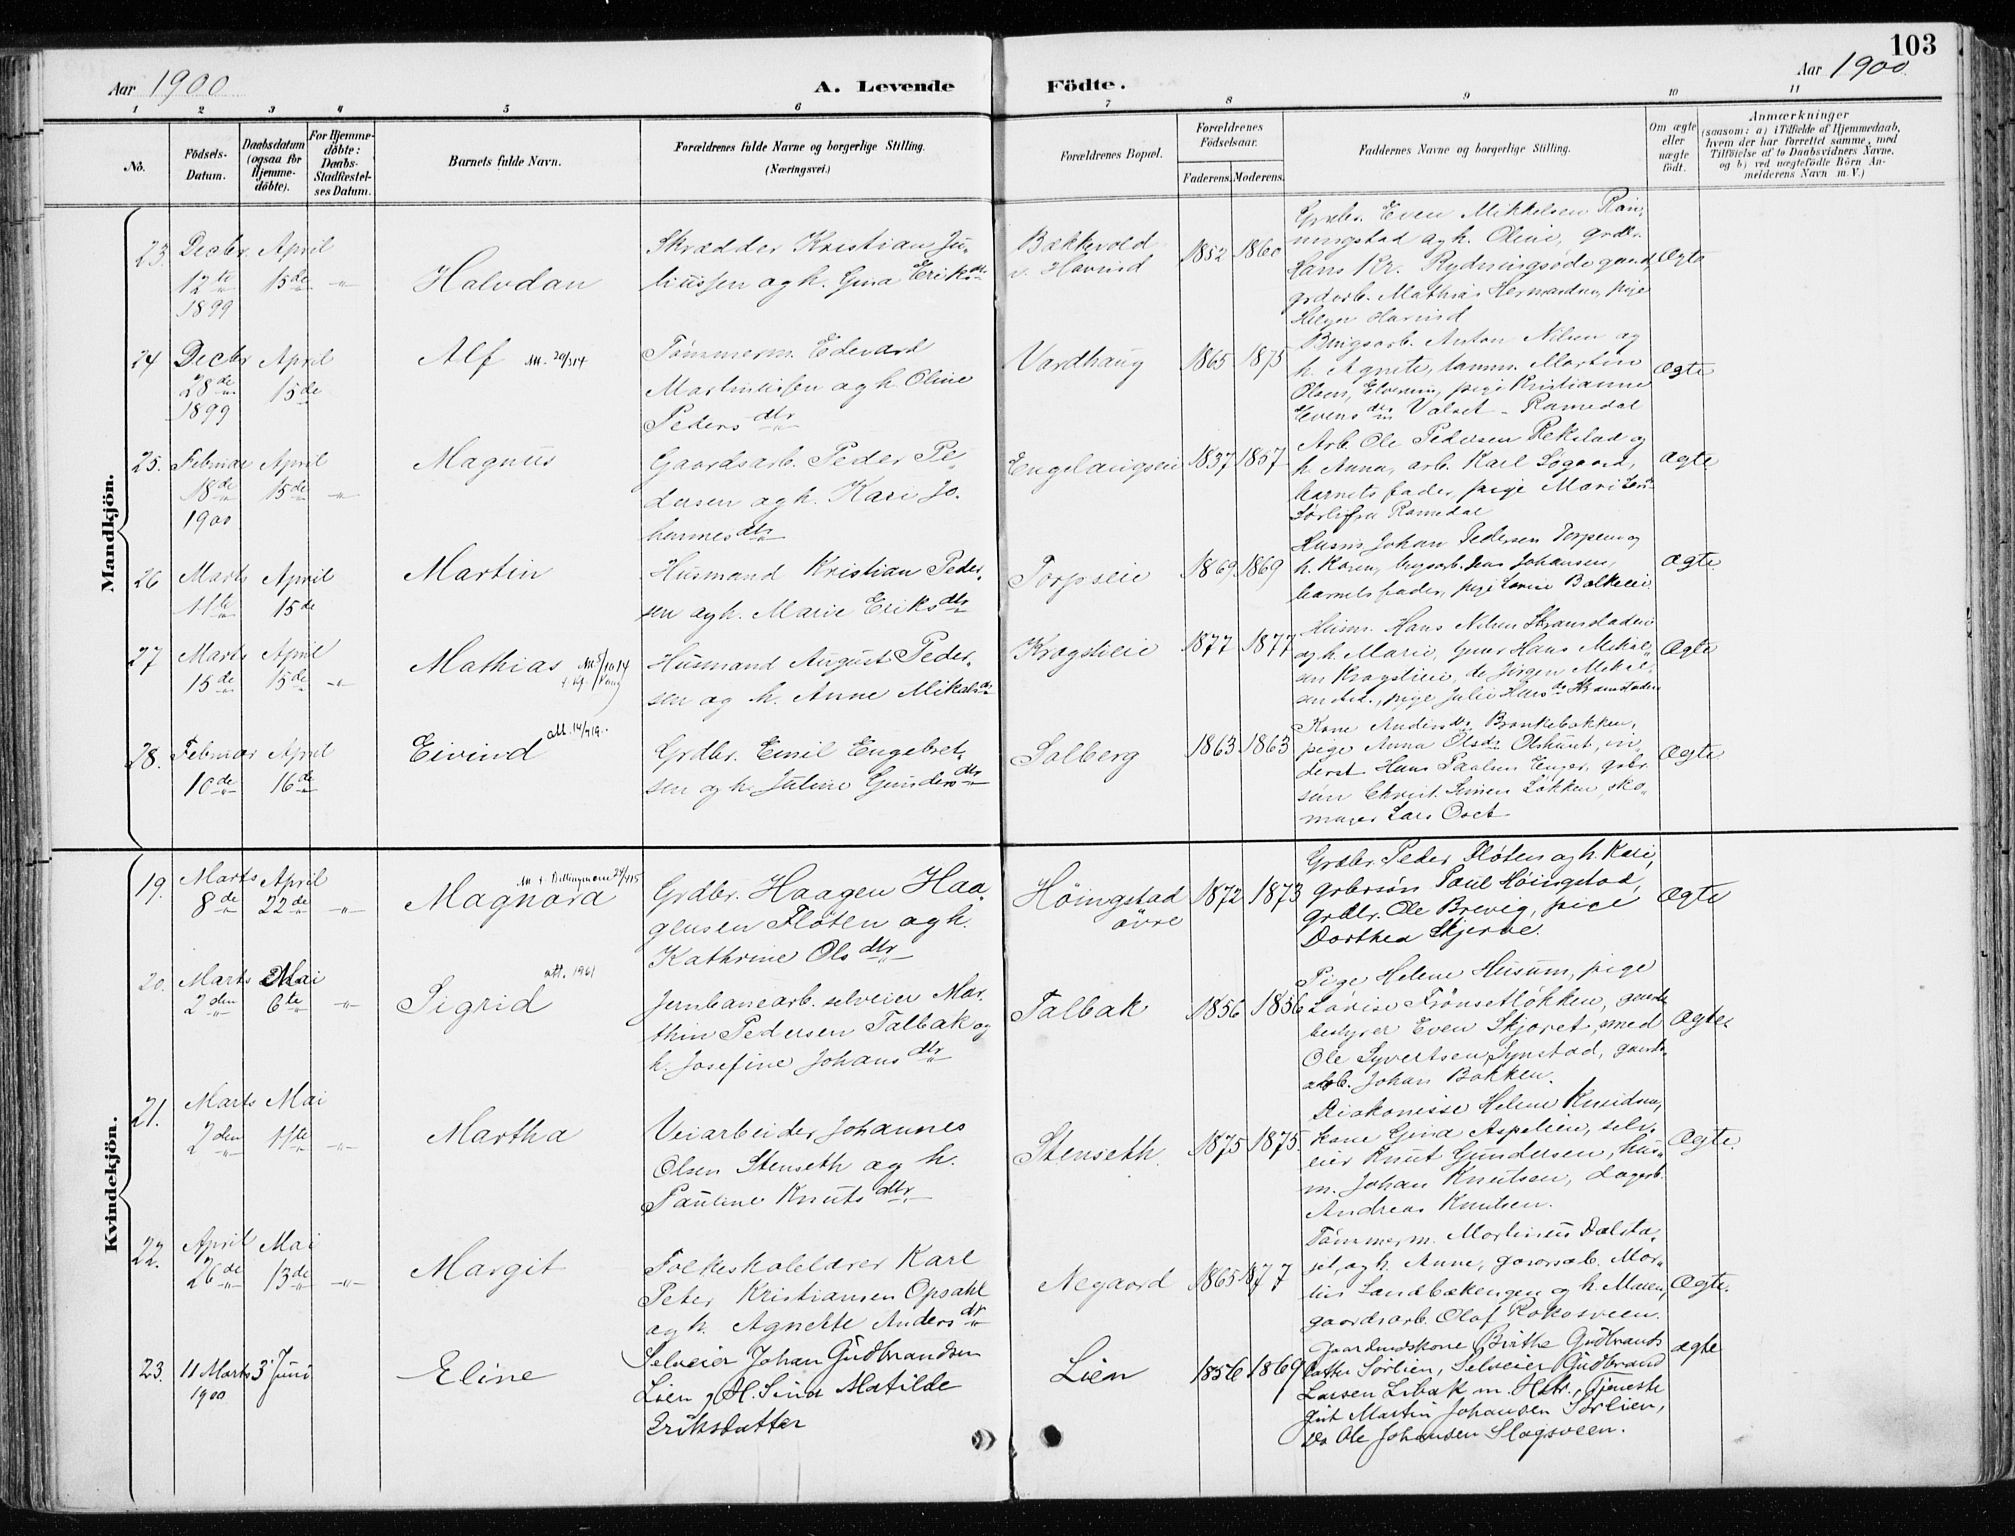 103
Aar 1900
A. Levende Födte.
Aar 1900
1 2 3 4 5 6 7 8 9 10 11
No.
Födsels-Datum.
Daabsdatum (ogsaa for Hjemmedøbte).
For Hjemmedøbte: Daabs-Stadfæstelses Datum.
Barnets fulde Navn.
Forældrenes fulde Navne og borgerlige Stilling.
(Næringsvei.)
Forældrenes Bopæl.
Forældrenes Fødselsaar.
Faderens. Moderens.
Faddernes Navne og borgerlige Stilling.
Om ægte eller uægte født.
Anmærkninger
(saasom: a) i Tilfælde af Hjemmedaab, hvem der har forrettet samme, med Tilföielse af to Daabsvidners Navne, og b) ved uægtefödte Börn Anmelderens Navn m. V.)
Mandkjön.
23. Decbr. 12te 1899 April 15de " Halvdan
Skrædder Kristian Ju-
liussen og h. Gina Eriksdtr
Bækkevold
v. Havind
1852 1860
Grdbr. Even Mikkelsen Ron-
ningstad og h. Oline, grdbr.
Hans Kr. Rydningsødegaard,
grdarb. Mathias Hermansen, pige
Helga Havind
Ægte
24 Decbr 28de 1899 April 15de Alf
Tømmerm. Edevard
Martiniussen og h. Oline
Pedersdtr
Vardhaug
1865 1875
Bergsarb. Anton Nilsen og
h. Agnete, tømm. Martin
Olsen, pige Kristianne
Evensdtr Valset - Romedal
Ægte
25. Februar 18de 1900 April 15de " Magnus
Gaardsarb. Peder Pe-
dersen og h. Kari Jo-
hannesdtr
Engelaugseie
1837 1857
Arb. Ole Pedersen Rekstad og
h. Anna, arb. Karl Søgaard,
barnets fader, pige Mari
Sørli fra Romedal
Ægte
26 Marts 11te April 15de Martin
Husmand Kristian Peder-
sen og h. Marie Eriksdtr
Torpseie
1869 1869
Husm. Johan Pedersen Torpseie og
h. Karen, Jens Johansen,
barnets fader, pige Lovise Balkeeie
Ægte
27 Marts 15de April 15de " Mathias
Husmand August Peder-
sen og h. Anne Mikelsdtr
Kragslieie
1877 1877
Husm. Hans Nilsen Skramstadeie
og h. Marie, Hans Mikel-
sen Kragslieie, do Jörgen Mikel-
sen, pige Julie Hansdtr Skramstadeie
Ægte
28. Februar 10de April 16de Eivind att. 14/7 19.
Grdbr. Emil Engebret-
sen og h. Juline Gundersdtr
Solberg
1863 1863
Kone Andersdtr Bronkebakken,
pige Anna Olsdtr Olshuset, in-
derst Hans Paulsen Enger, grbr.
søn Christ. Simen Løkken, sko-
mager Lars Oset
Ægte
Kvindekjön.
19. Marts 8de April 22de " Magnora
Grdbr. Haagen Haa-
gensen Fløten og h.
Kathrine Olsdtr
Höingstad
övre
1872 1873
Grdbr. Peder Fløten og h. Kari
grdbrsön Paul Höingstad,
grdbr. Ole Brevig, pige
Dorthea Skjerve.
Ægte
20. Marts 2den Mai 6te " Sigrid att. 1961
Jernbanearb. selveier Mar-
thin Pedersen Talbak og
h. Josefine Johansdtr
Talbak
1856 1856
Pige Helene Husum, pige
Lovise Frönsetløkken, gaards-
bestyrer Even Skjøret, smed
Ole Syvertsen Synstad, gaards-
arb. Johan Bakken.
Ægte
21. Marts 2den Mai 11te " Martha
Veiarbeider Johannes
Olsen Stenseth og h.
Pauline Knutsdtr
Stenseth.
1875 1875.
Diakonisse Helene Knudsen,
kone Gina Aspelien, selv-
eier Knut Gundersen, hus-
m. Johan Knutsen, Dagarb.
Andreas Knutsen.
Ægte.
22. April 26de Mai 13de " Margit
Folkeskolelærer Karl
Peter Kristiansen Opsahl
og h. Agnethe Andersdtr
Negaard
1865 1877
Tömmerm. Martinius Dælsta-
set, og h. Anne, gaardsarb. Mar-
tin Landbækengen og h. Maren,
gaardsarb. Olaf Rokosveen.
Ægte.
23. 11 Marts 1900 3 Juni Eline
Selveier Johan Gudbrandsen
Lien, H. Sina Matilde
Eriksdatter
Lien
1856 1869
Gaardmdskone Birthe Gudbrands-
datter Sörlien, Selveier Gudbrand
Larsen Libak m. Hstr., Tjeneste-
gut Martin Johansen Sörlien,
Do Ole Johansen Slagsveen.
ægte